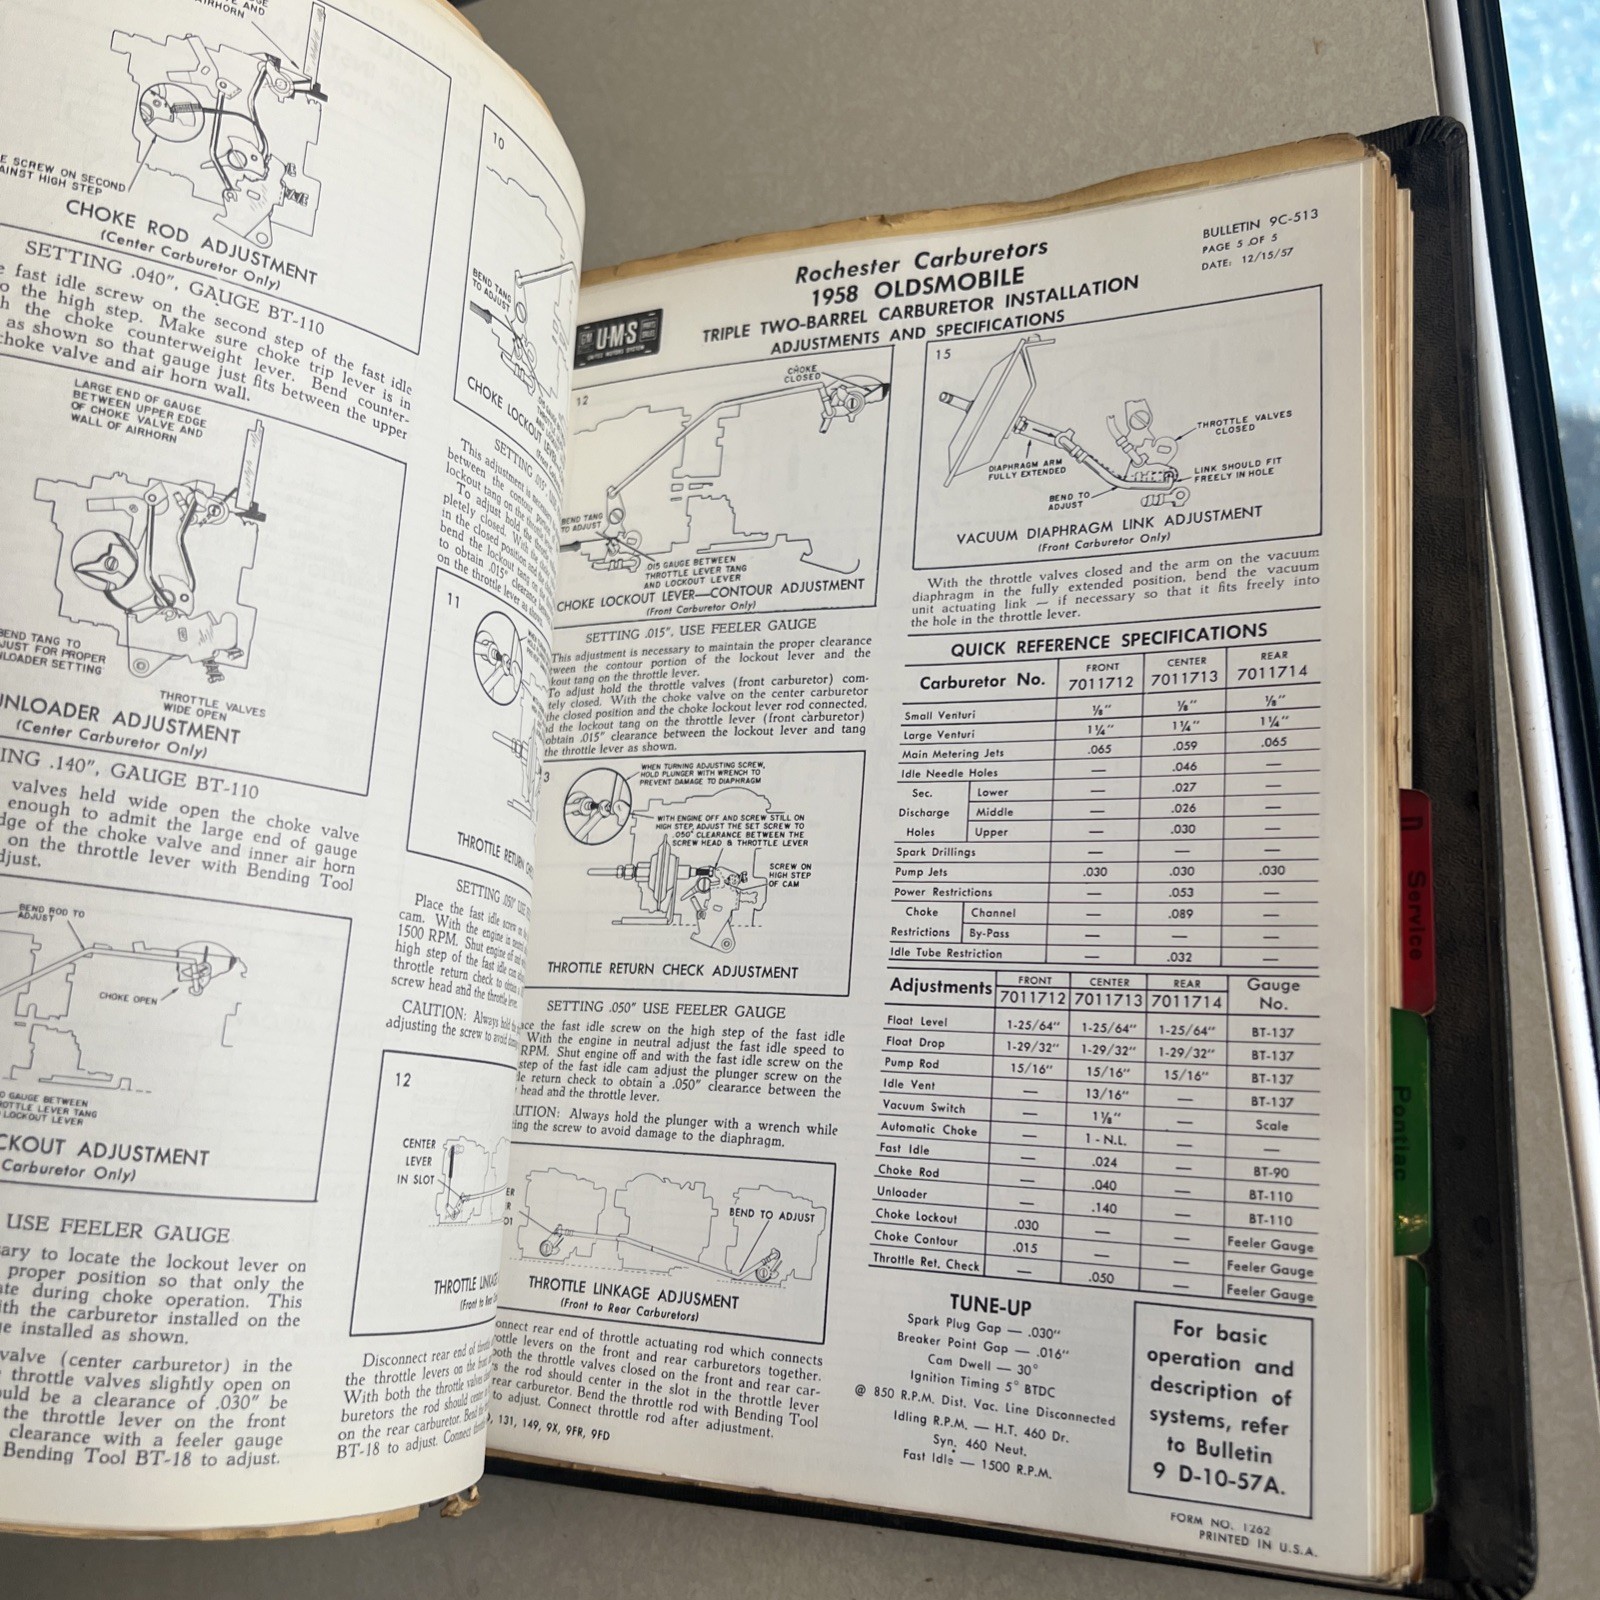 AIRHORN
SCREW ON SECOND
HIGH STEP
CHOKE ROD ADJUSTMENT
(Center Carburetor Only)
SETTING .040", GAUGE BT-110
fast idle screw on the second step of the fast idle
the high step. Make sure choke trip lever is in
the choke counterweight lever. Bend counter-
as shown so that gauge just fits between the upper
choke valve and air horn wall.
LARGE END OF GAUGE
BETWEEN UPPER EDGE
OF CHOKE VALVE AND
WALL OF AIRHORN
BEND TANG TO
FOR PROPER
SETTING
THROTTLE VALVES
WIDE OPEN
UNLOADER ADJUSTMENT
(Center Carburetor Only)
.140", GAUGE BT-110
valves held wide open the choke valve
enough to admit the large end of gauge
of the choke valve and inner air horn
on the throttle lever with Bending Tool
BEND ROD TO
ADJUST
CHOKE OPEN
GAUGE BETWEEN
LEVER TANG
LOCKOUT LEVER
ADJUSTMENT
Carburetor Only)
USE FEELER GAUGE
to locate the lockout lever on
proper position so that only the
during choke operation. This
with the carburetor installed on the
installed as shown.
valve (center carburetor) in the
throttle valves slightly open on
be a clearance of .030" be
the throttle lever on the front
clearance with a feeler gauge
Bending Tool BT-18 to adjust.
10
BEND TANG
TO ADJUST
CHOKE LOCKOUT
SETTING .015"
This adjustment is necessary
between the contour
lockout tang on the
To adjust hold the
pletely closed. With the
in the closed position and the
bend the lockout tang
to obtain .015" clearance
on the throttle lever as
11
THROTTLE RETURN
SETTING .050" USE
Place the fast idle screw
cam. With the engine in
1500 RPM. Shut engine off
high step of the fast idle cam
throttle return check to
screw head and the throttle
CAUTION: Always hold
adjusting the screw to avoid
12
CENTER
LEVER
IN SLOT
THROTTLE
(Front to Rear
Disconnect rear end of
the throttle levers on the
With both the throttle valves
buretors the rod should
on the rear carburetor. Bend
BT-18 to adjust. Connect
BULLETIN 9C-513
PAGE 5 OF 5
DATE: 12/15/57
Rochester Carburetors
1958 OLDSMOBILE
TRIPLE TWO-BARREL CARBURETOR INSTALLATION
ADJUSTMENTS AND SPECIFICATIONS
GM
U·M·S
UNITED MOTORS SYSTEM
12
CHOKE
CLOSED
BEND TANG
TO ADJUST
.015 GAUGE BETWEEN
THROTTLE LEVER TANG
AND LOCKOUT LEVER
CHOKE LOCKOUT LEVER—CONTOUR ADJUSTMENT
(Front Carburetor Only)
SETTING .015", USE FEELER GAUGE
This adjustment is necessary to maintain the proper clearance
the contour portion of the lockout lever and the
tang on the throttle lever.
To adjust hold the throttle valves (front carburetor) com-
closed. With the choke valve on the center carburetor
the closed position and the choke lockout lever rod connected,
the lockout tang on the throttle lever (front carburetor)
obtain .015" clearance between the lockout lever and tang
the throttle lever as shown.
WHEN TURNING ADJUSTING SCREW,
HOLD PLUNGER WITH WRENCH TO
PREVENT DAMAGE TO DIAPHRAGM
WITH ENGINE OFF AND SCREW STILL ON
HIGH STEP, ADJUST THE SET SCREW TO
.050" CLEARANCE BETWEEN THE
SCREW HEAD & THROTTLE LEVER
SCREW ON
HIGH STEP
OF CAM
THROTTLE RETURN CHECK ADJUSTMENT
SETTING .050" USE FEELER GAUGE
the fast idle screw on the high step of the fast idle
With the engine in neutral adjust the fast idle speed to
RPM. Shut engine off and with the fast idle screw on the
step of the fast idle cam adjust the plunger screw on the
return check to obtain a .050" clearance between the
head and the throttle lever.
Always hold the plunger with a wrench while
the screw to avoid damage to the diaphragm.
BEND TO ADJUST
THROTTLE LINKAGE ADJUSMENT
(Front to Rear Carburetors)
rear end of throttle actuating rod which connects
levers on the front and rear carburetors together.
both the throttle valves closed on the front and rear car-
the rod should center in the slot in the throttle lever
rear carburetor. Bend the throttle rod with Bending Tool
to adjust. Connect throttle rod after adjustment.
131, 149, 9X, 9FR, 9FD
15
THROTTLE VALVES
CLOSED
DIAPHRAGM ARM
FULLY EXTENDED
LINK SHOULD FIT
FREELY IN HOLE
BEND TO
ADJUST
VACUUM DIAPHRAGM LINK ADJUSTMENT
(Front Carburetor Only)
With the throttle valves closed and the arm on the vacuum
diaphragm in the fully extended position, bend the vacuum
unit actuating link — if necessary so that it fits freely into
the hole in the throttle lever.
QUICK REFERENCE SPECIFICATIONS
Carburetor No. FRONT 7011712 CENTER 7011713 REAR 7011714
Small Venturi ⅛" ⅛" ⅛"
Large Venturi 1¼" 1¼" 1¼"
Main Metering Jets .065 .059 .065
Idle Needle Holes — .046 —
Sec. Discharge Holes Lower — .027 —
Middle — .026 —
Upper — .030 —
Spark Drillings — — —
Pump Jets .030 .030 .030
Power Restrictions — .053 —
Choke Restrictions Channel — .089 —
By-Pass — — —
Idle Tube Restriction — .032 —
Adjustments FRONT 7011712 CENTER 7011713 REAR 7011714 Gauge No.
Float Level 1-25/64" 1-25/64" 1-25/64" BT-137
Float Drop 1-29/32" 1-29/32" 1-29/32" BT-137
Pump Rod 15/16" 15/16" 15/16" BT-137
Idle Vent — 13/16" — BT-137
Vacuum Switch — 1⅛" — Scale
Automatic Choke — 1 - N.L. — —
Fast Idle — .024 — BT-90
Choke Rod — .040 — BT-110
Unloader — .140 — BT-110
Choke Lockout .030 — — Feeler Gauge
Choke Contour .015 — — Feeler Gauge
Throttle Ret. Check — .050 — Feeler Gauge
TUNE-UP
Spark Plug Gap — .030"
Breaker Point Gap — .016"
Cam Dwell — 30°
Ignition Timing 5° BTDC
@ 850 R.P.M. Dist. Vac. Line Disconnected
Idling R.P.M. — H.T. 460 Dr.
Syn. 460 Neut.
Fast Idle — 1500 R.P.M.
For basic
operation and
description of
systems, refer
to Bulletin
9 D-10-57A.
FORM NO. 1262
PRINTED IN U.S.A.
Service
Pontiac